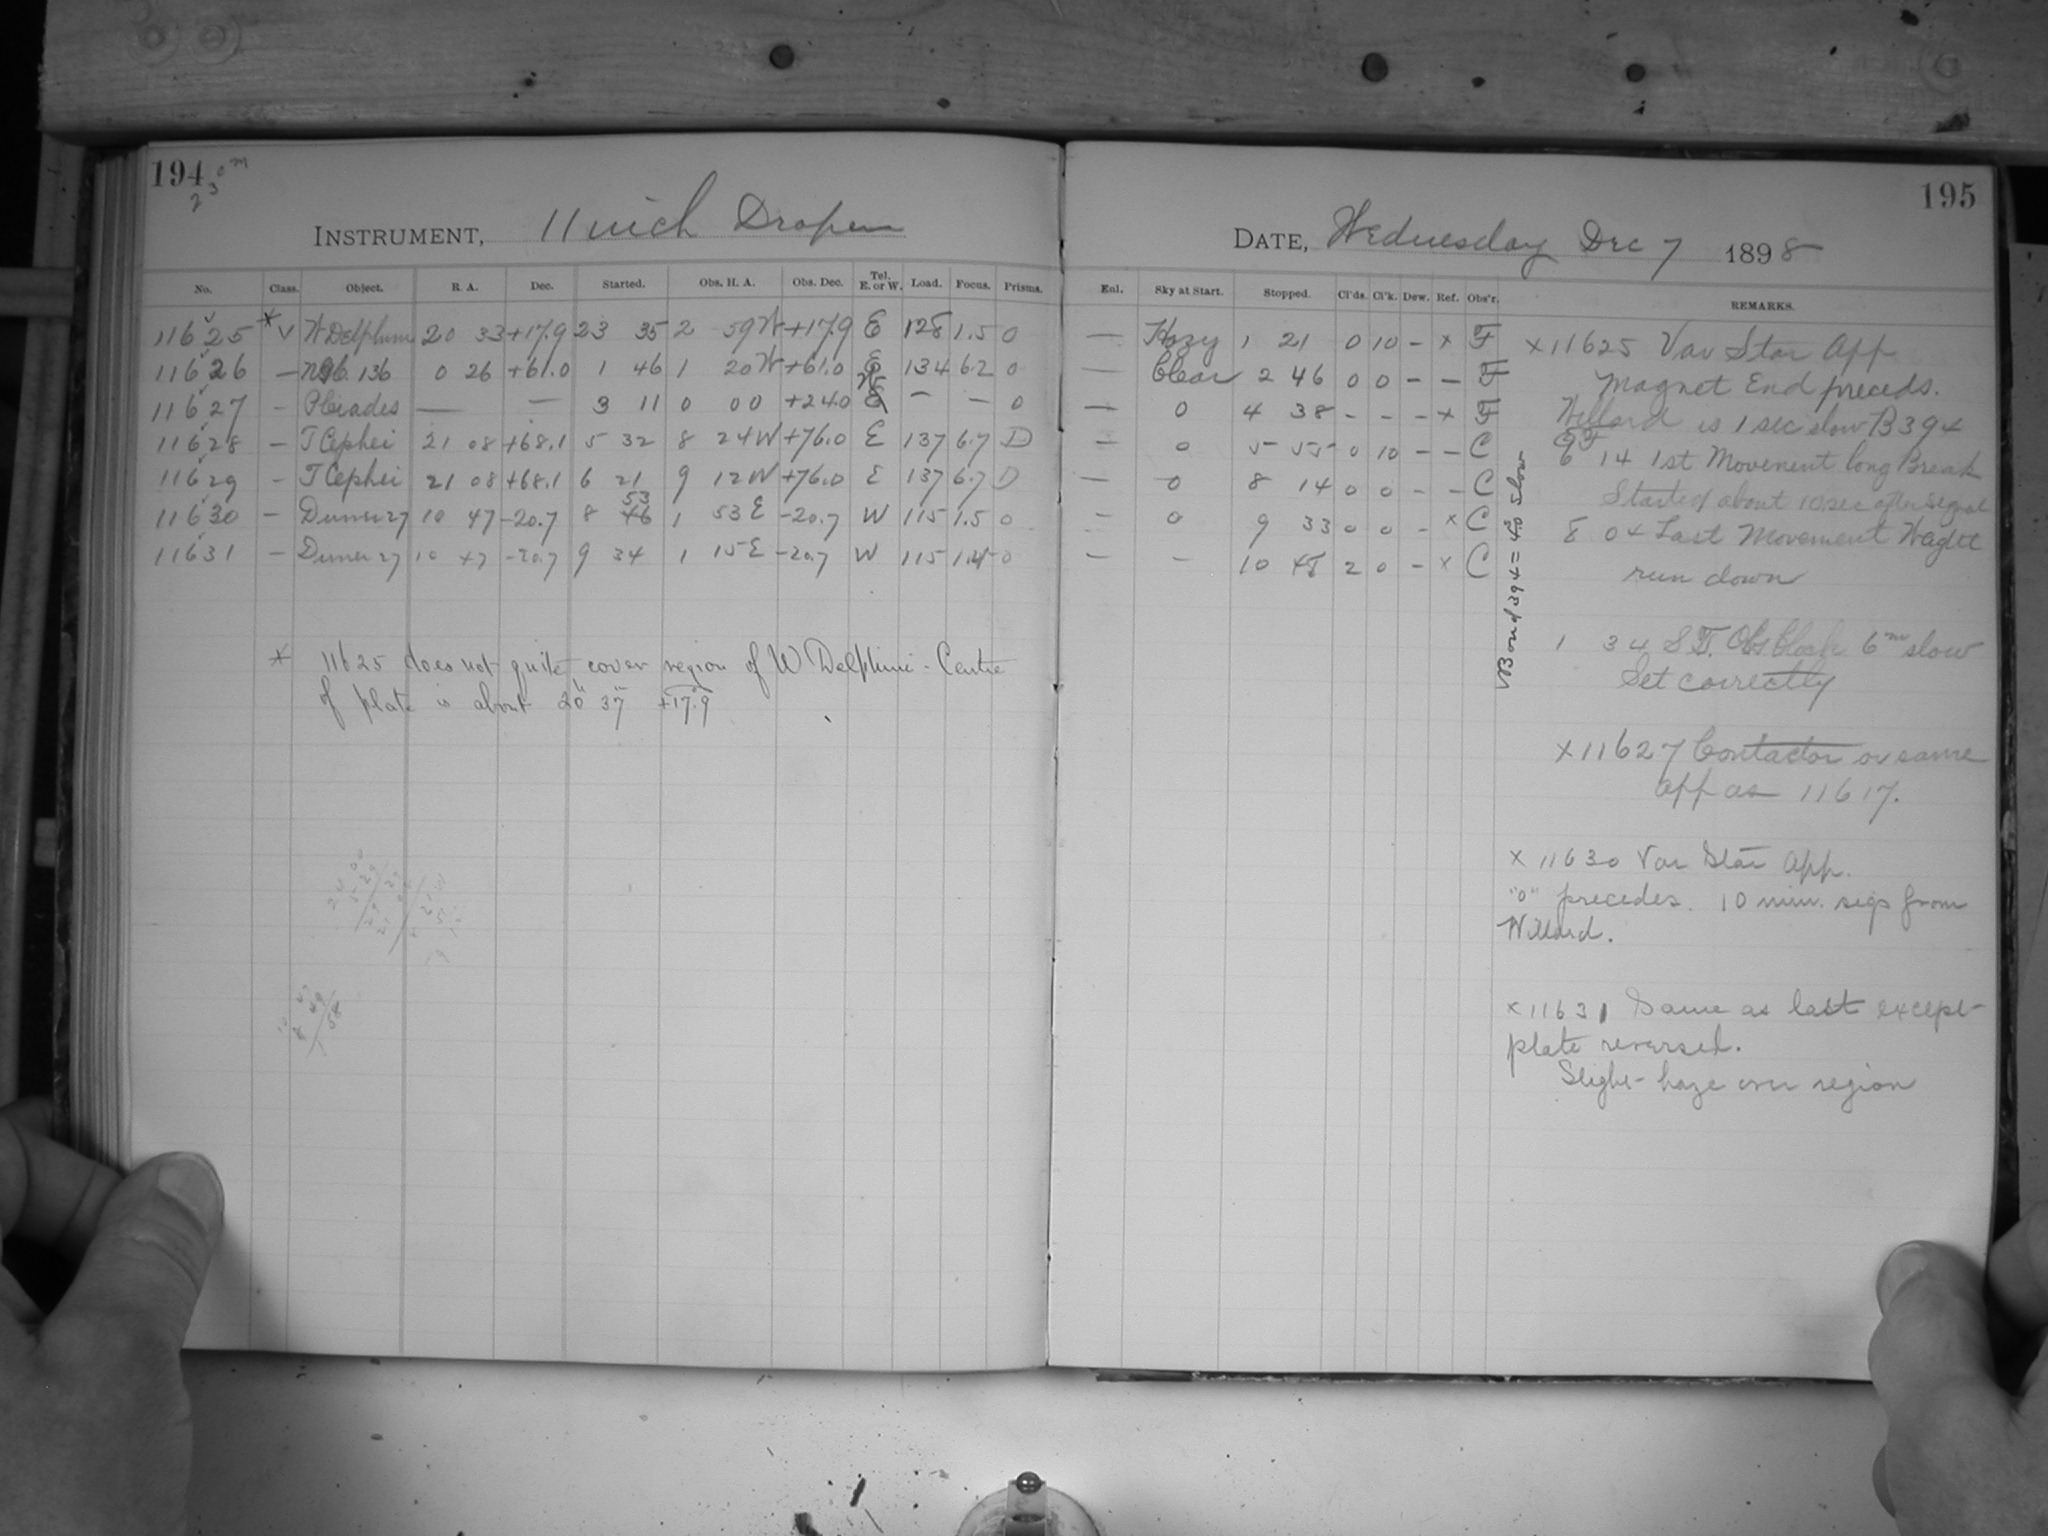 194
23 0m
INSTRUMENT, 11 inch Draper
No. Class. Object. R. A. Dec. Started. Obs. H. A. Obs. Dec. Tel. E. or W. Load. Focus. Prisms.
11625 * v W Delphini 20 33 +17.9 23 35 2 59 W +17.9 E 128 1.5 0
11626 — NGC. 136 0 26 +61.0 1 46 1 20 W +61.0 E 134 6.2 0
11627 - Pleiades — — 3 11 0 00 +24.0 W — — 0
11628 - T Cephei 21 08 +68.1 5 32 8 24 W +76.0 E 137 6.7 D
11629 - T Cephei 21 08 +68.1 6 21 9 12 W +76.0 E 137 6.7 D
11630 - Duner 27 10 47 -20.7 8 53 1 53 E -20.7 W 115 1.5 0
11631 - Duner 27 10 47 -20.7 9 34 1 15 E -20.7 W 115 1.4 0
* 11625 does not quite cover region of W Delphini - Centre
of plate is about 20h 37m +17°.9
195
DATE, Wednesday Dec 7 1898
Enl. Sky at Start. Stopped. Cl'ds. Cl'k. Dew. Ref. Obs'r. REMARKS.
— Hazy 1 21 0 10 - x F
— Clear 2 46 0 0 - - F
— 0 4 38 - - - x F
— 0 5 55 0 10 - - C
— 0 8 14 0 0 - - C
- 0 9 33 0 0 - x C
- - 10 48 2 0 - x C
Bond 394 = slow
x 11625 Var Star App
Magnet End preceds.
Willard is 1 sec slow B394
6 14 1st Movement long Break
Started about 10 sec after signal
8 04 Last Movement Weight
run down
1 34 S.T. Obs Clock 6m slow
Set correctly
x 11627 Contactor or same
app as 11617.
x 11630 Var Star App.
"0" precedes. 10 min. segs from
Willard.
x 11631 Same as last except
plate reversed.
Slight haze over region